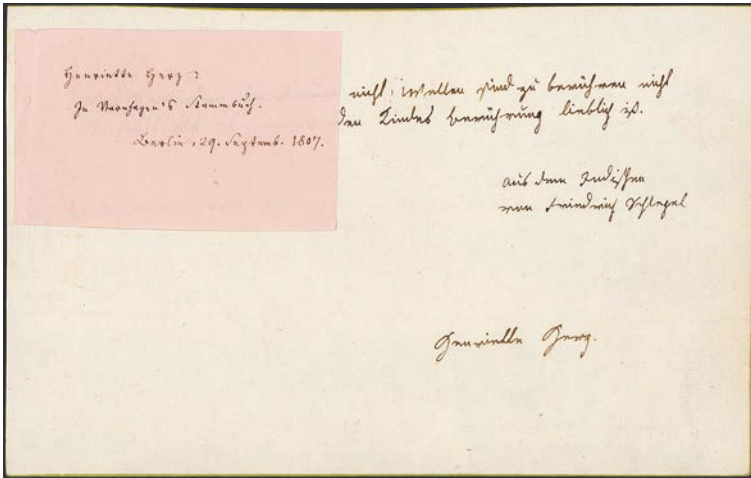 Henriette Herz:
In Varnhagen's Stammbuch.
Berlin, 29. Septemb. 1807.
nicht, Wellen sind zu berühren nicht
den Kindes Berührung lieblich ist.
Aus dem Indischen
von Friedrich Schlegel
Henriette Herz.